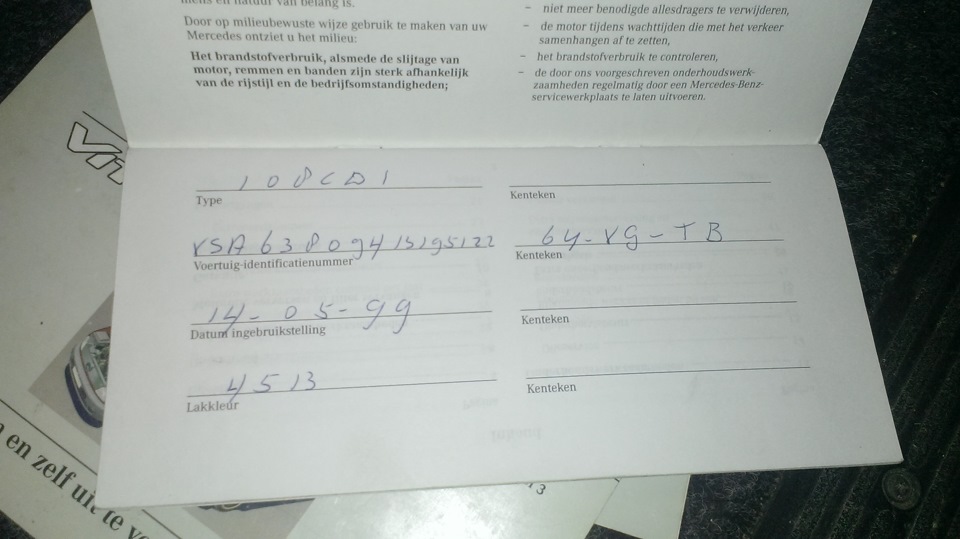 van belang is.
Door op milieubewuste wijze gebruik te maken van uw
Mercedes ontziet u het milieu:
Het brandstofverbruik, alsmede de slijtage van
motor, remmen en banden zijn sterk afhankelijk
van de rijstijl en de bedrijfsomstandigheden;
– niet meer benodigde allesdragers te verwijderen,
– de motor tijdens wachttijden die met het verkeer
samenhangen af te zetten,
– het brandstofverbruik te controleren,
– de door ons voorgeschreven onderhoudswerk-
zaamheden regelmatig door een Mercedes-Benz-
servicewerkplaats te laten uitvoeren.
108CDI
Type
Kenteken
VSA63809415195122
Voertuig-identificatienummer
64-VG-TB
Kenteken
14-05-99
Datum ingebruikstelling
Kenteken
4513
Lakkleur
Kenteken
en zelf uit te